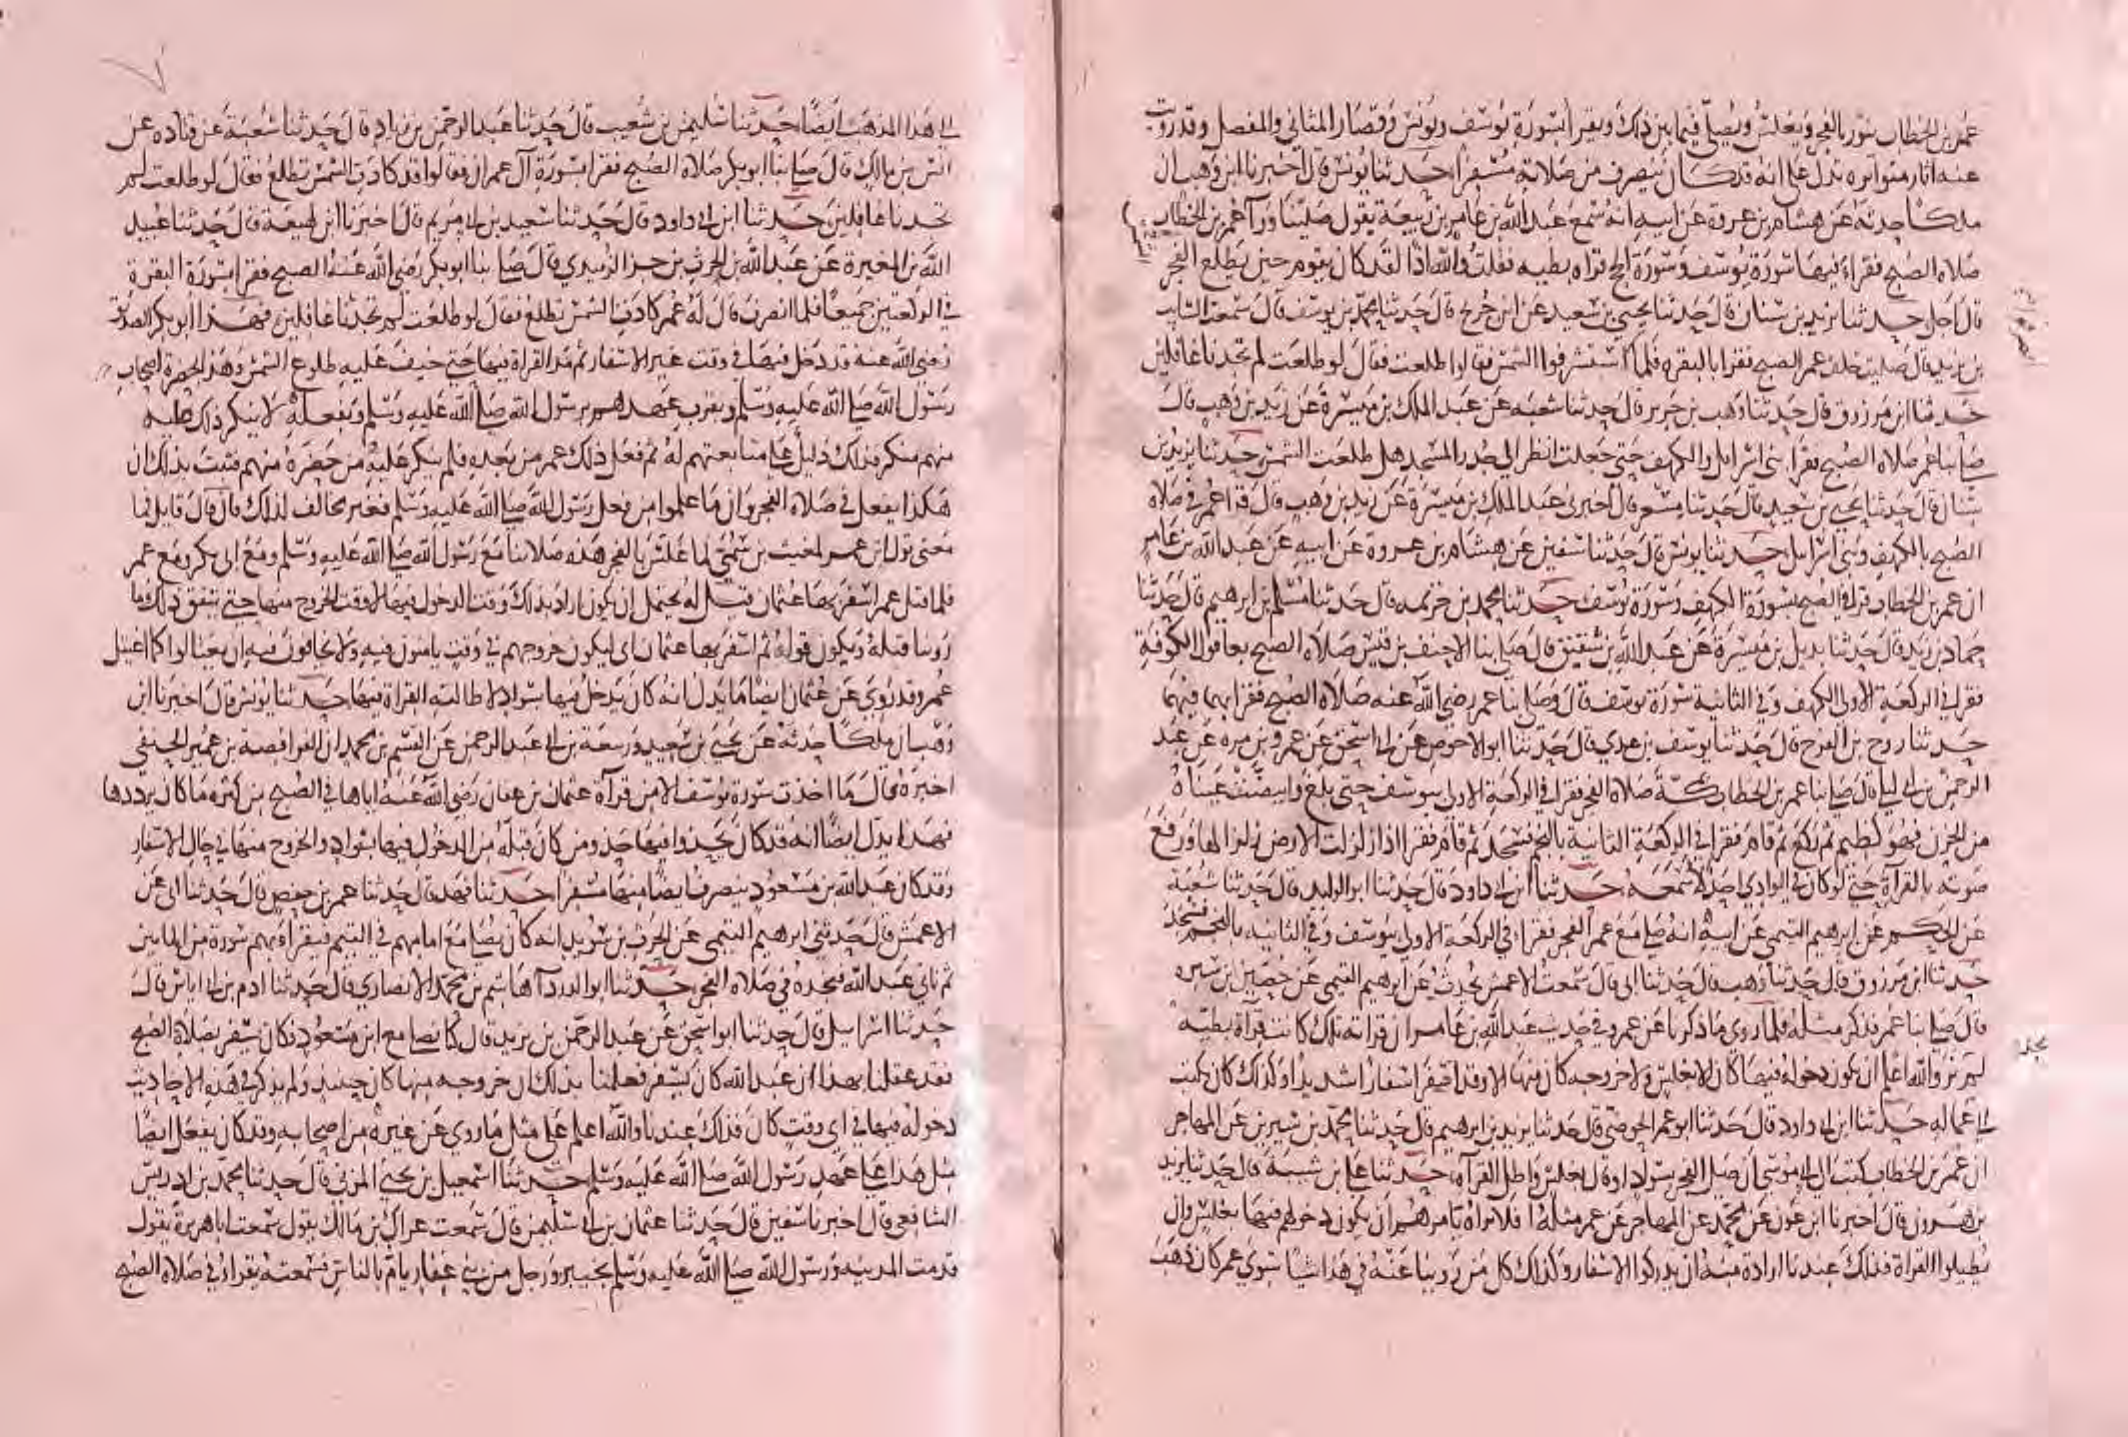 عمر بن الخطاب ينور بالفجر ويغلس ويصلي فيما بين ذلك ويقرا بسورة يوسف ويونس وقصار المثاني والمفصل وقد روت
عنه اثار متواترة تدل على انه قد كان ينصرف من صلاته مسفرا حدثنا يونس قال اخبرنا ابن وهب ان
ملكا حدثه عن هشام بن عروة عن ابيه انه سمع عبد الله بن عامر بن ربيعة يقول صلينا ورا عمر بن الخطاب
صلاة الصبح فقرا فيها سورة يوسف وسورة الحج قراه بطيه فقلت والله اذا لقد كان يقوم حين يطلع الفجر
قال اجل حدثنا يزيد بن سنان قال حدثنا يحيى بن سعيد عن ابن جريج قال حدثنا محمد بن يوسف قال سمعت السايب
بن يزيد قال صليت خلف عمر الصبح فقرا بالبقرة فلما استشرفوا الشمس فقالوا طلعت فقال لو طلعت لم تجدنا غافلين
حدثنا ابن مرزوق قال حدثنا وهب بن جرير قال حدثنا شعبه عن عبد الملك بن ميسرة عن زيد بن وهب قال
صلى بنا عمر صلاة الصبح فقرا بني اسرايل والكهف حتى جعلت انظر الى جدر المسجد هل طلعت الشمس حدثنا يزيد بن
سنان قال حدثنا يحيى بن سعيد قال حدثنا مسعر قال اخبرني عبد الملك بن ميسرة عن زيد بن وهب قال قرا عمر في صلاة
الصبح بالكهف وبني اسرايل حدثنا يونس قال حدثنا سفين عن هشام بن عروة عن ابيه عن عبد الله بن عامر
ان عمر بن الخطاب قرا في الصبح بسورة الكهف وسورة يوسف حدثنا محمد بن خزيمه قال حدثنا مسلم بن ابرهيم قال حدثنا
حماد بن زيد قال حدثنا بديل بن ميسرة عن عبد الله بن شقيق قال صلى بنا الاحنف بن قيس صلاة الصبح بعاقول الكوفة
فقرا في الركعة الاولى الكهف وفي الثانية سورة يوسف قال وصلى بنا عمر رضي الله عنه صلاة الصبح فقرا بهما فيهما
حدثنا روح بن الفرج قال حدثنا يوسف بن عدي قال حدثنا ابو الاحوص عن ابي اسحق عن عمرو بن مره عن عبد
الرحمن بن ابي ليلى قال صلى بنا عمر بن الخطاب بمكة صلاة الفجر فقرا في الركعة الاولى بيوسف حتى بلغ وابيضت عيناه
من الحزن فهو كظيم ثم ركع ثم قام فقرا في الركعة الثانية بالنجم فسجد ثم قام فقرا اذا زلزلت الارض زلزالها ورفع
صوته بالقرآة حتى لو كان في الوادي احد لاسمعه حدثنا ابن ابي داود قال حدثنا ابو الوليد قال حدثنا شعبة
عن الحكم عن ابرهيم التيمي عن ابيه انه صلى مع عمر الفجر فقرا في الركعة الاولى بيوسف وفي الثانيه بالنجم فسجد
حدثنا ابن مرزوق قال حدثنا وهب قال حدثنا ابي قال سمعت الاعمش يحدث عن ابرهيم التيمي عن حصين بن سبره
قال صلى بنا عمر فذكر مثله فلما روي ما ذكرنا عن عمر وفي حديث عبد الله بن عامر ان قراته تلك كانت قرآة بطيه
لم نر والله اعلم ان يكون دخوله فيها كان الا بغلس ولا خروجه كان منها الا وقد اسفر اسفارا شديدا وكذلك كان يكتب
الى عماله حدثنا ابن ابي داود قال حدثنا ابو عمر الحوضي قال حدثنا يزيد بن ابرهيم قال حدثنا محمد بن سيرين عن المهاجر
ان عمر بن الخطاب كتب الى ابي موسى ان صل الفجر بسواد او قال بغلس واطل القرآة حدثنا علي بن شيبة قال حدثنا يزيد
بن هرون قال اخبرنا ابن عون عن محمد عن المهاجر عن عمر مثله افلا تراه يامرهم ان يكون دخولهم فيها بغلس وان
يطيلوا القراة فذلك عندنا ارادة منه ان يدركوا الاسفار وكذلك كل من روينا عنه في هذا شيا سوى عمر كان ذهب
الى هذا المذهب ايضا حدثنا سليمن بن شعيب قال حدثنا عبد الرحمن بن زياد قال حدثنا شعبة عن قتاده عن
انس بن مالك قال صلى بنا ابو بكر صلاة الصبح فقرا بسورة آل عمران فقالوا قد كادت الشمس تطلع فقال لو طلعت لم
تجدنا غافلين حدثنا ابن ابي داود قال حدثنا سعيد بن ابي مريم قال اخبرنا ابن لهيعة قال حدثنا عبيد
الله بن المغيرة عن عبد الله بن الحرث بن جز الزبيدي قال صلى بنا ابو بكر رضي الله عنه الصبح فقرا بسورة البقرة
في الركعتين جميعا فلما انصرف قال له عمر كادت الشمس تطلع فقال لو طلعت لم تجدنا غافلين فهذا ابو بكر الصديق
رضي الله عنه قد دخل فيها في وقت غير الاسفار ثم مد القراة فيها حتى خيف عليه طلوع الشمس وهذا بحضرة اصحاب
رسول الله صلى الله عليه وسلم وبقرب عهدهم برسول الله صلى الله عليه وسلم وبفعله لا ينكر ذلك عليه
منهم منكر فذلك دليل على متابعتهم له ثم فعل ذلك عمر من بعده فلم ينكر عليه من حضره منهم فثبت بذلك ان
هكذا يفعل في صلاة الفجر وان ما علموا من فعل رسول الله صلى الله عليه وسلم فغير مخالف لذلك فان قال قايل فما
معنى قول ابن عمر لمغيث بن سمي لما غلس بالفجر هذه صلاتنا مع رسول الله صلى الله عليه وسلم ومع ابي بكر ومع عمر
فلما قتل عمر اسفر بها عثمان قيل له يحتمل ان يكون اراد بذلك وقت الدخول فيها لا وقت الخروج منها حتى يتفق ذلك وما
روينا قبله ويكون قوله ثم اسفر بها عثمان اي ليكون خروجهم في وقت يامنون فيه ولا يخافون فيه ان يغتالوا كما اغتيل
عمر وقد روي عن عثمان ايضا ما يدل انه كان يدخل فيها بسواد لاطالته القراة فيها حدثنا يونس قال اخبرنا ابن
وهب ان ملكا حدثه عن يحيى بن سعيد وربيعة بن ابي عبد الرحمن عن القسم بن محمد ان الفرافصة بن عمير الحنفي
اخبره قال ما اخذت سورة يوسف الا من قرآة عثمان بن عفان رضي الله عنه اياها في الصبح من كثرة ما كان يرددها
فهذا يدل ايضا انه قد كان يحذوا فيها حذو من كان قبله من الدخول فيها بسواد والخروج منها في حال الاسفار
وقد كان عبد الله بن مسعود ينصرف ايضا منها مسفرا حدثنا فهد قال حدثنا عمر بن حفص قال حدثنا ابي عن
الاعمش قال حدثني ابرهيم التيمي عن الحرث بن سويد انه كان يصلي مع امامهم في التيم فيقرا بهم سورة من المايين
ثم ياتي عبد الله فيجده في صلاة الفجر حدثنا ابو الدردآ هاشم بن محمد الانصاري قال حدثنا ادم بن ابي اياس قال
حدثنا اسرايل قال حدثنا ابو اسحق عن عبد الرحمن بن يزيد قال كنا نصلي مع ابن مسعود فكان يسفر بصلاة الصبح
فقد عقلنا بهذا ان عبد الله كان يسفر فعلمنا بذلك ان خروجه منها كان حينيذ ولم يذكر في هذه الاحاديث
دخوله فيها في اي وقت كان فذلك عندنا والله اعلم على مثل ما روي عن غيره من اصحابه وقد كان يفعل ايضا
مثل هذا على عهد رسول الله صلى الله عليه وسلم حدثنا اسمعيل بن يحيى المزني قال حدثنا محمد بن ادريس
الشافعي قال اخبرنا سفين قال حدثنا عثمان بن ابي سليمن قال سمعت عراك بن مالك يقول سمعت ابا هريرة يقول
قدمت المدينه ورسول الله صلى الله عليه وسلم بخيبر ورجل من بني غفار يام بالناس فسمعته يقرا في صلاة الصبح